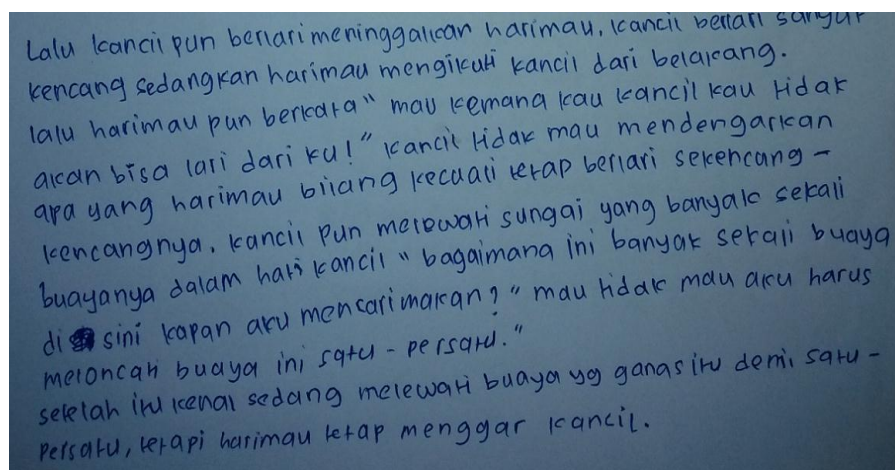 Lalu kancil pun berlari meninggalkan harimau, kancil berlari sangat
kencang sedangkan harimau mengikuti kancil dari belakang.
lalu harimau pun berkata "mau kemana kau kancil kau tidak
akan bisa lari dari ku!" kancil tidak mau mendengarkan
apa yang harimau bilang kecuali tetap berlari sekencang -
kencangnya. kancil pun melewati sungai yang banyak sekali
buayanya dalam hati kancil "bagaimana ini banyak sekali buaya
di sini kapan aku mencari makan?" mau tidak mau aku harus
meloncati buaya ini satu - persatu."
setelah itu sedang melewati buaya yg ganas itu demi satu -
persatu, tetapi harimau tetap menggar kancil.